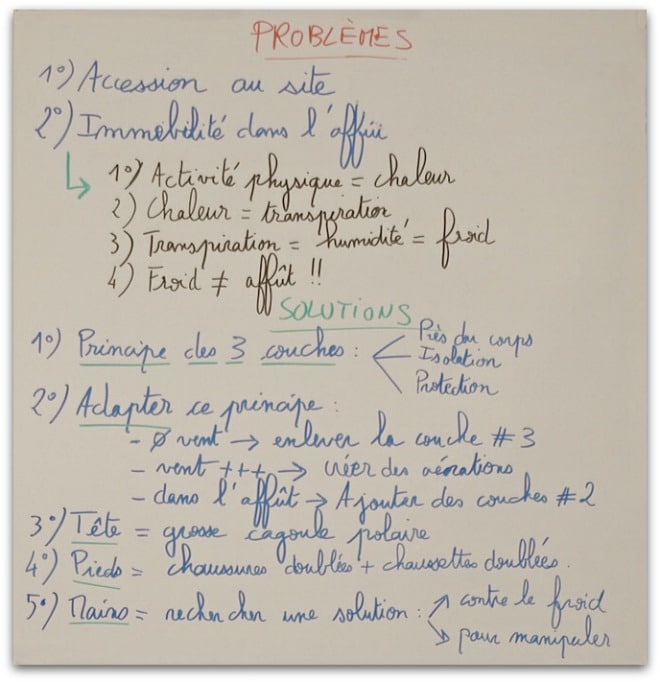 PROBLÈMES
1°) Accession au site
2°) Immobilité dans l'affût
↳ 1°) Activité physique = chaleur
2) Chaleur = transpiration
3) Transpiration = humidité = froid
4) Froid ≠ affût !!
SOLUTIONS
1°) Principe des 3 couches :
Près du corps
Isolation
Protection
2°) Adapter ce principe :
- Ø vent → enlever la couche #3
- vent +++ → créer des aérations
- dans l'affût → Ajouter des couches #2
3°) Tête = grosse cagoule polaire
4°) Pieds = chaussures doublées + chaussettes doublées.
5°) Mains = rechercher une solution : ↗ contre le froid
↘ pour manipuler